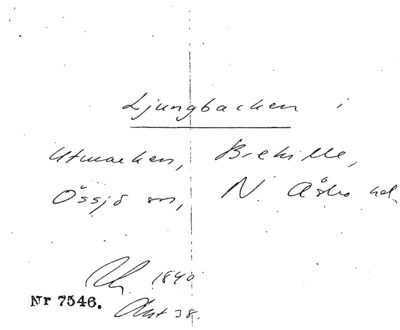 Ljungbacken i
Utmarken, Brehille,
Össjö sn, N. Åsbo hd.
1840
Nr 7546. Akt 38.